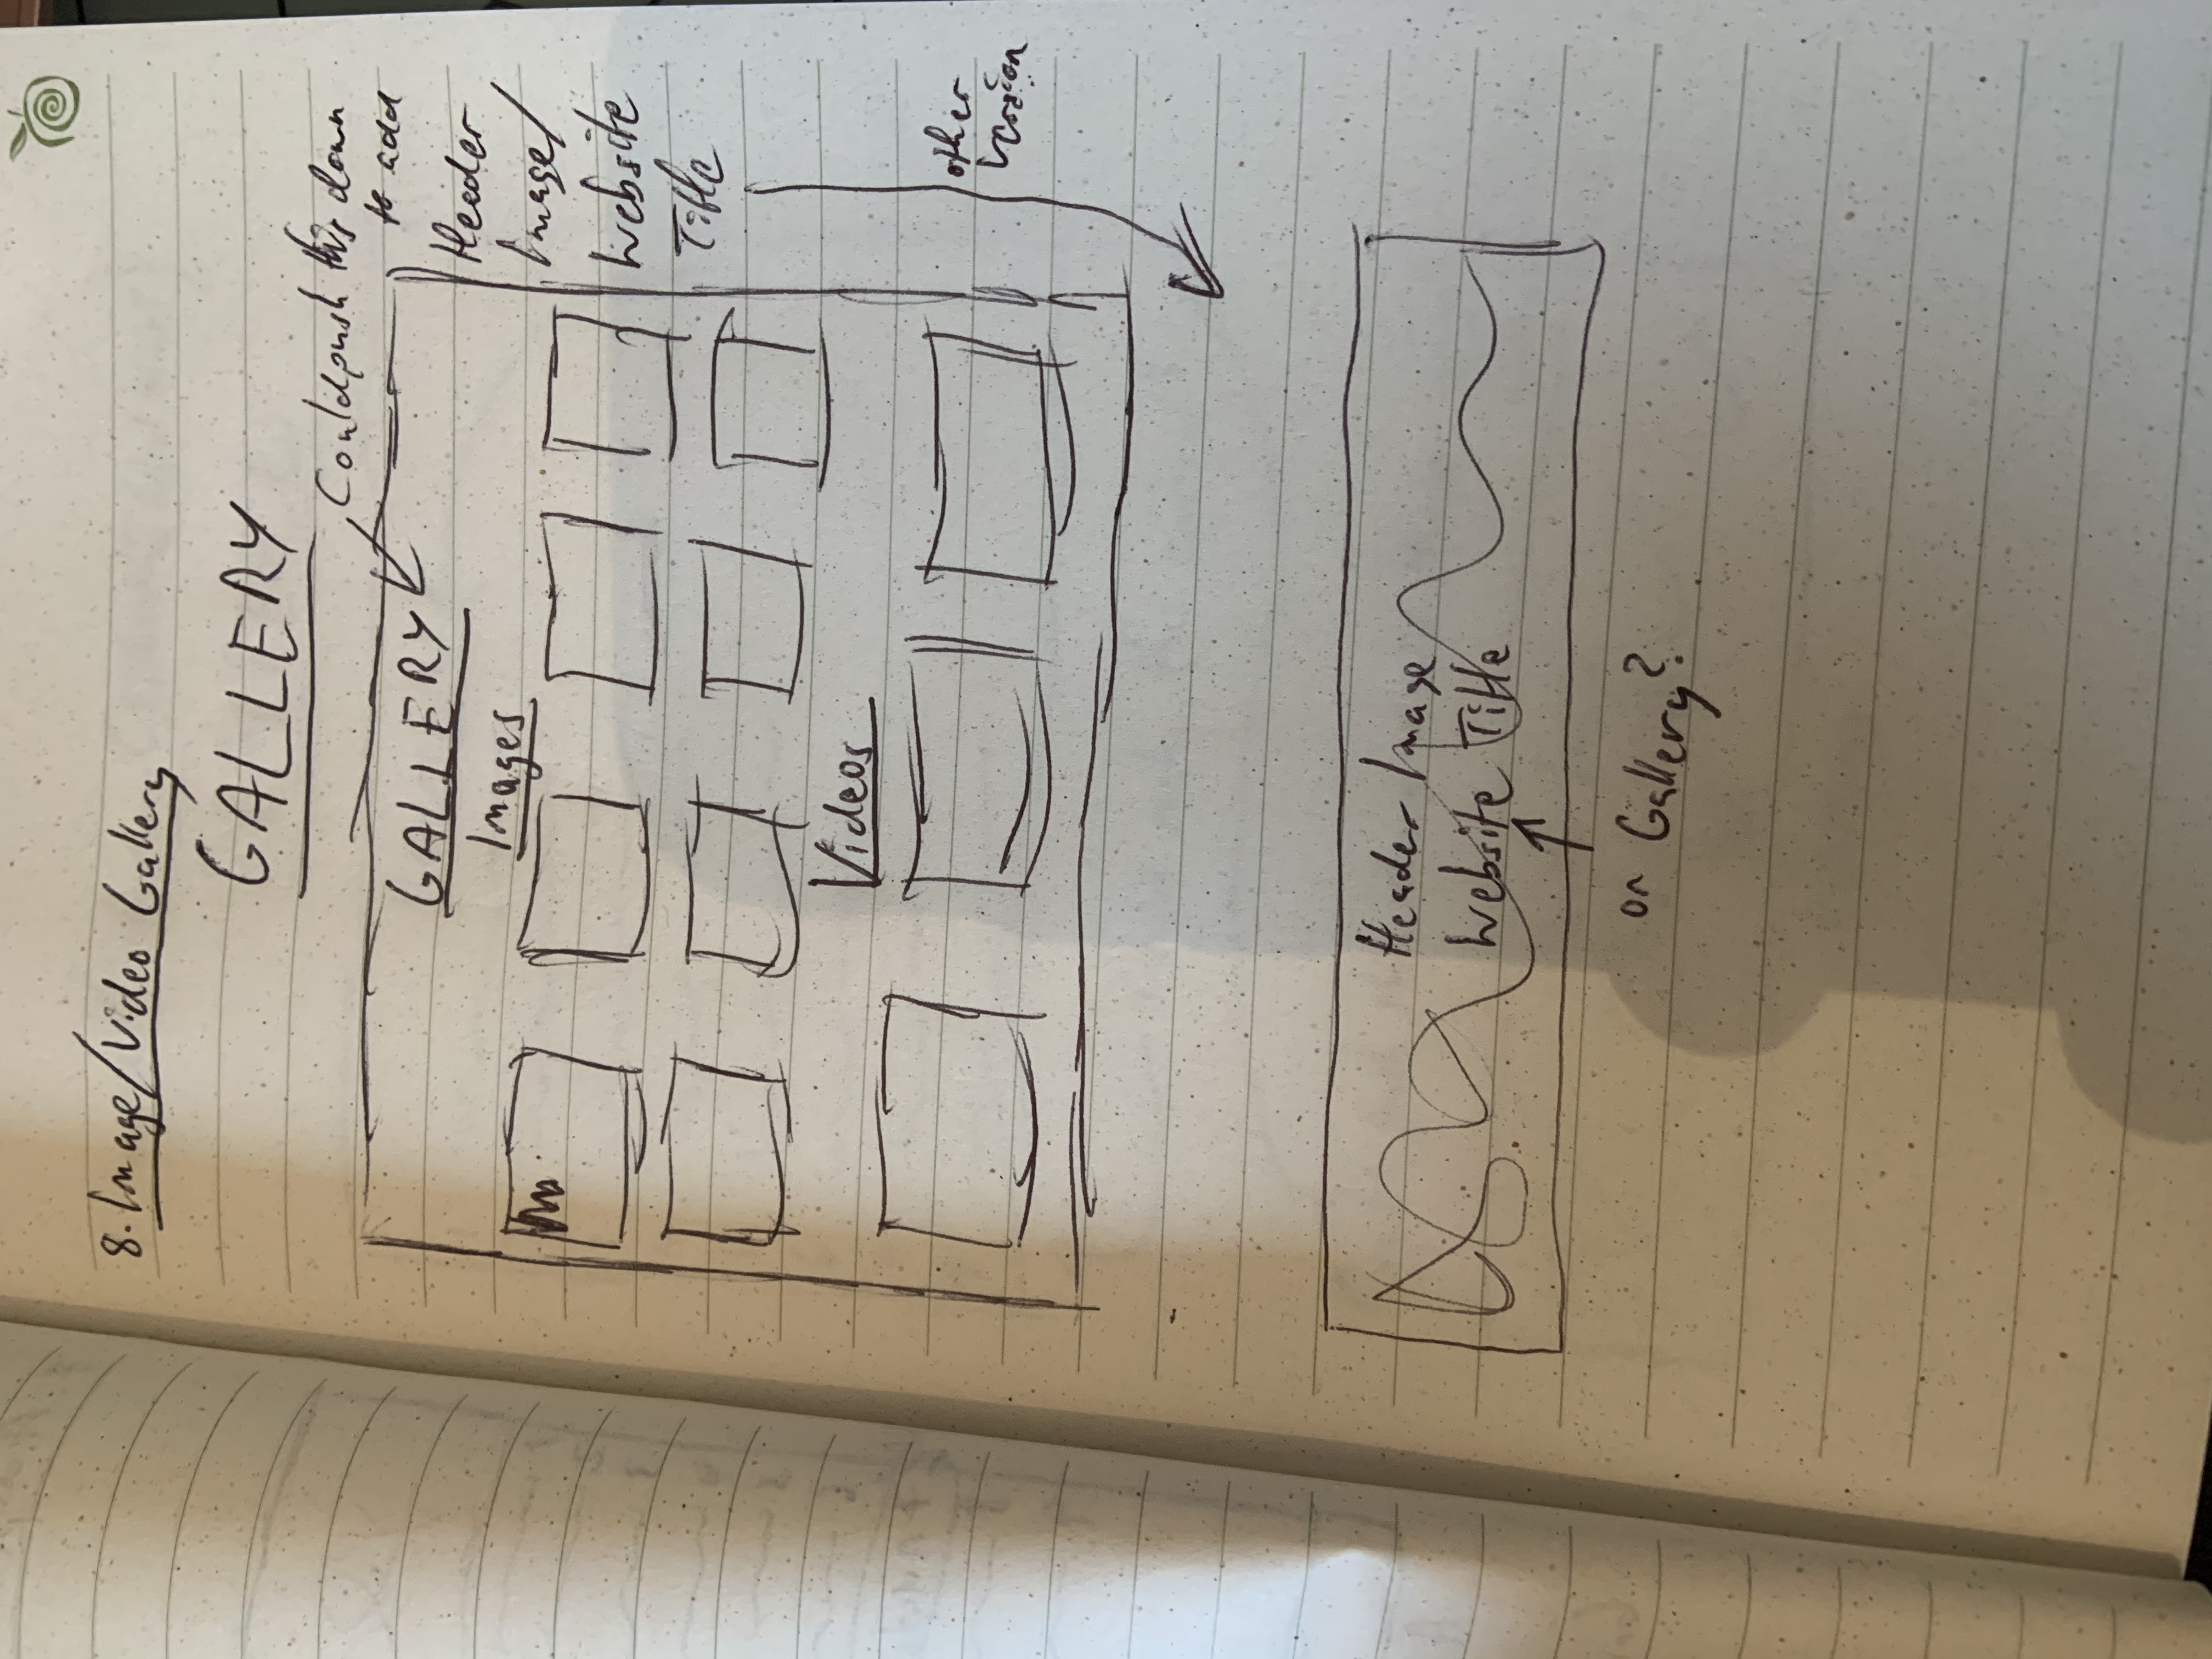 8. Image/Video Gallery
GALLERY
Could push this down
to add
Header
Image/
Website
Title
GALLERY
Images
Videos
other
version
Header Image
Website Title
or Gallery?